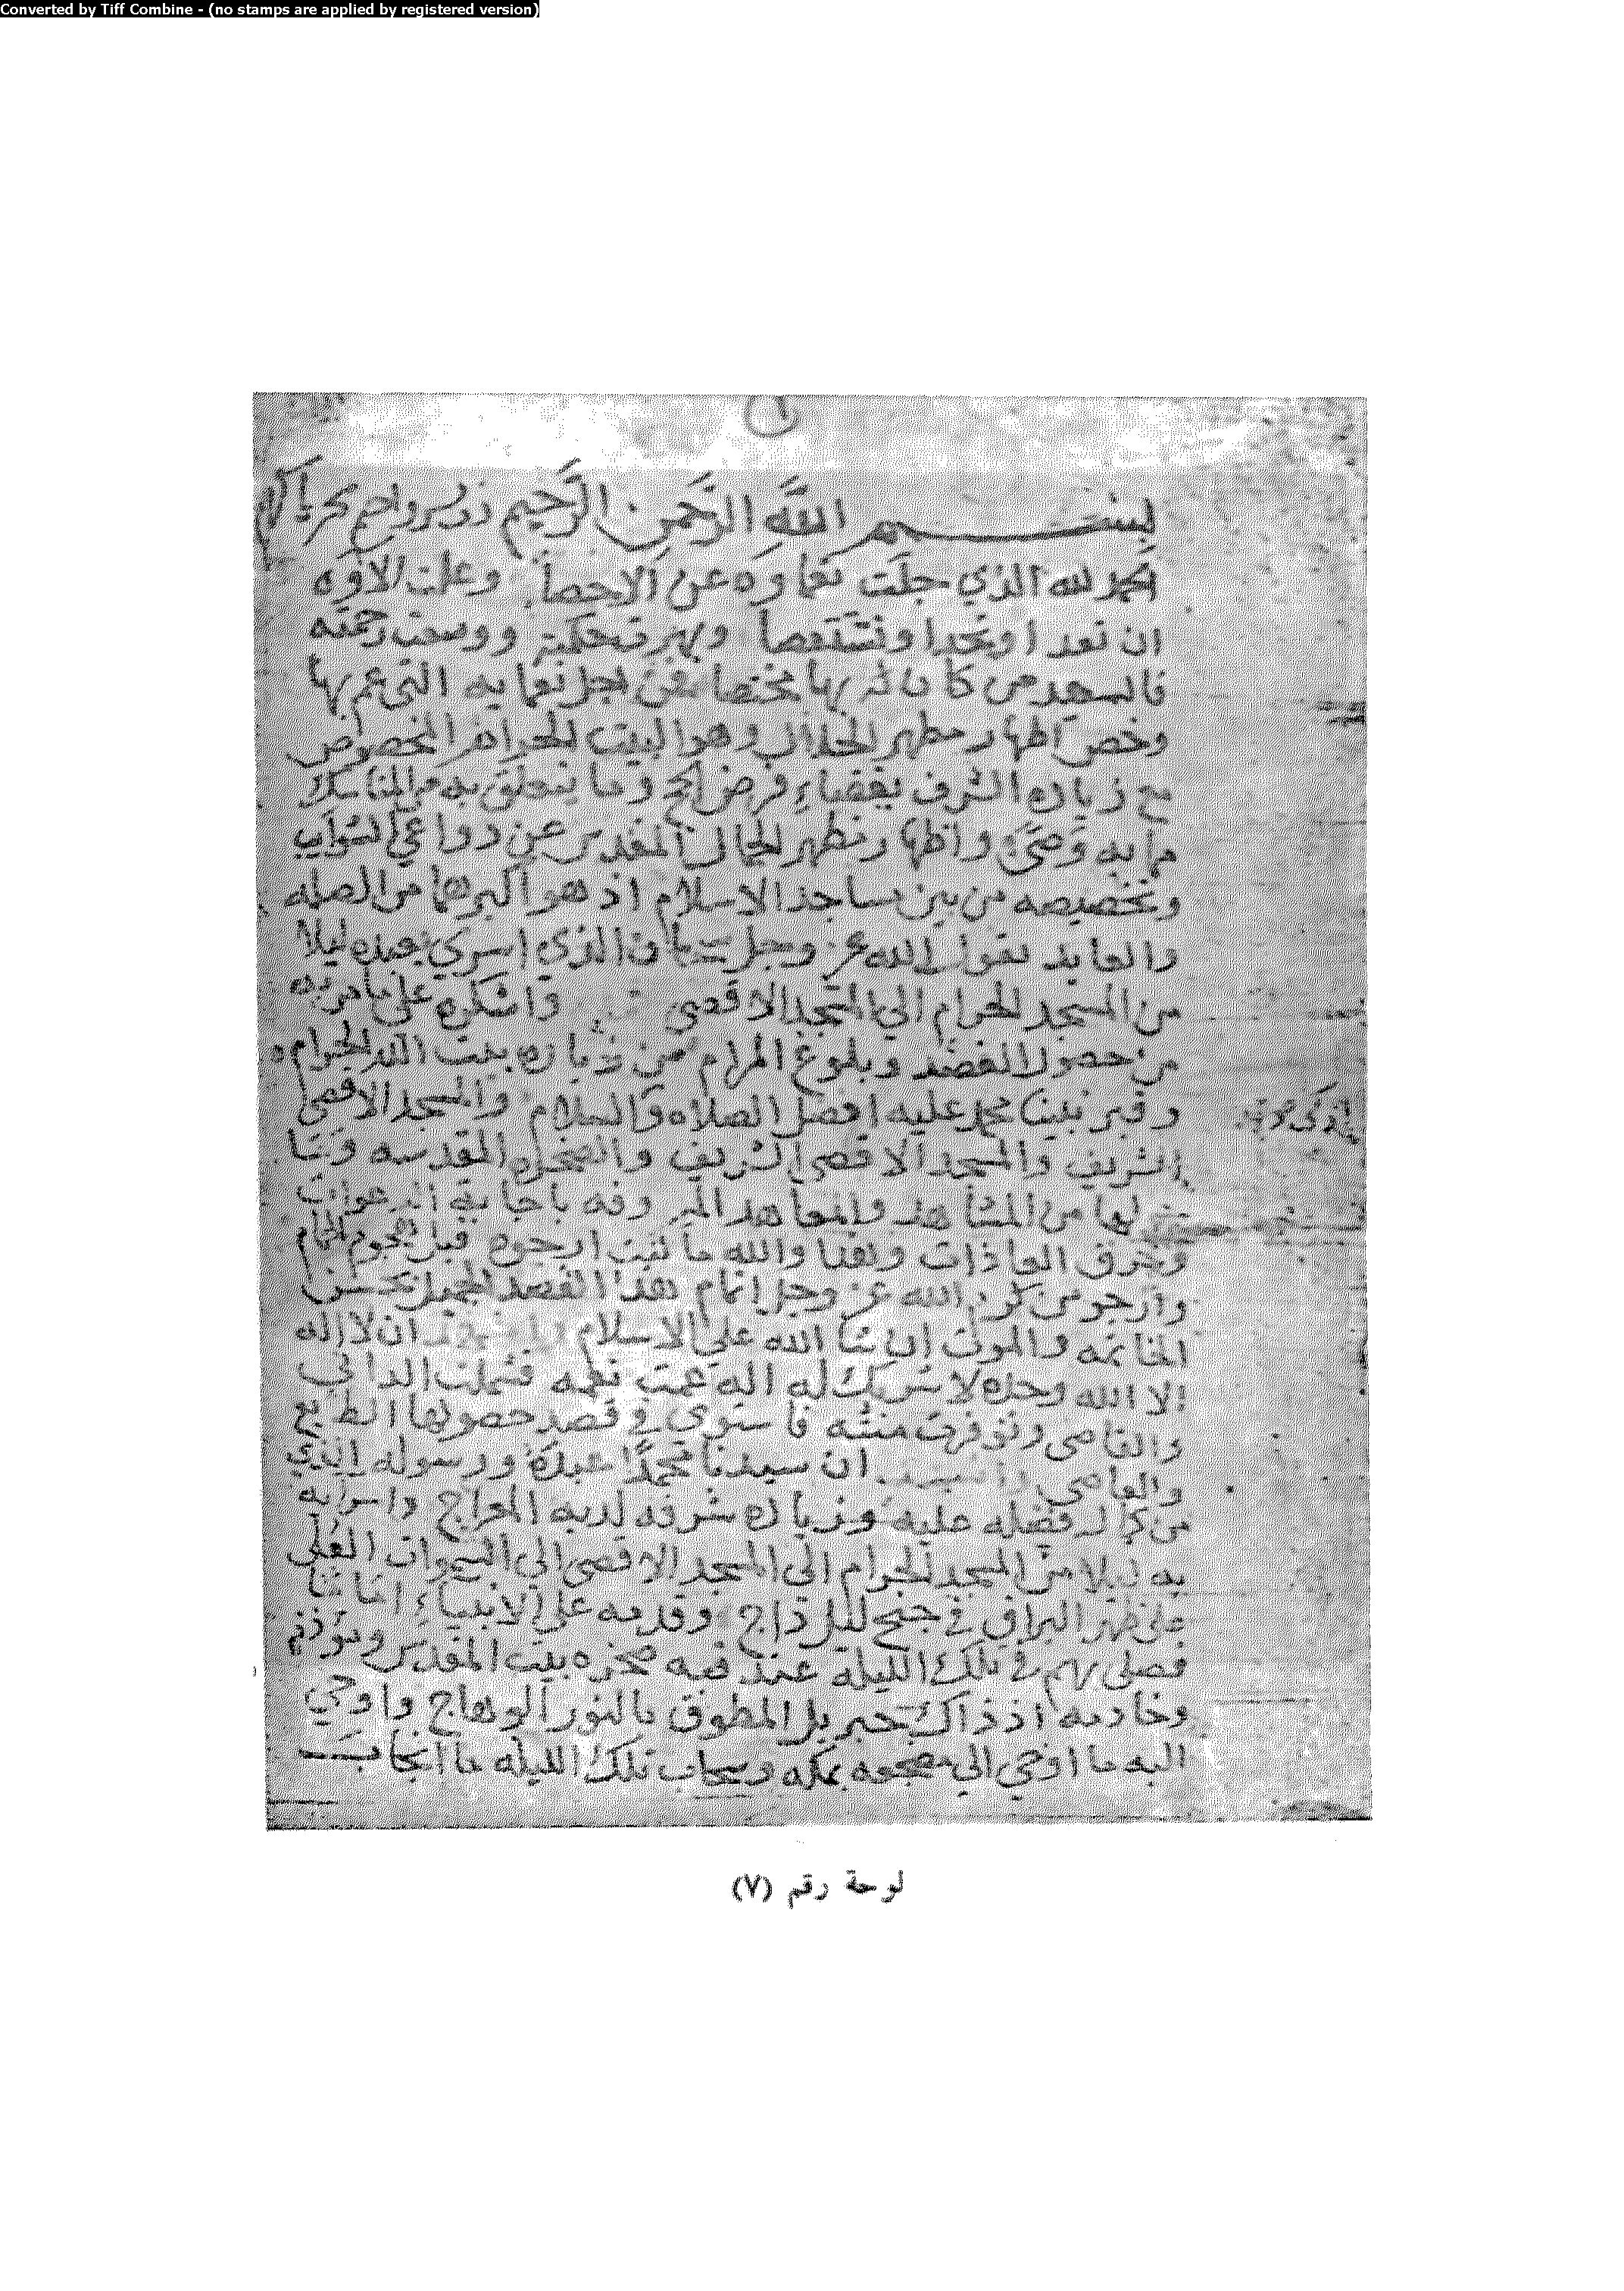 Converted by Tiff Combine - (no stamps are applied by registered version)
بسم الله الرحمن الرحيم
الحمد لله الذي جلت نعماوه عن الاحصا وعلت الاوه
ان تعد او تحد او تستقصا وبهرت حكمته ووسعت رحمته
فالسعيد من كان بها مختصا من اجل نعمايه التي عم بها
وخص اظهار مظهر الجلال وهو البيت الحرام المخصوص
مع زياده الشرف بقضاء فرض الحج وما يتعلق به من المناسك
مما به وصى واظهار مظهر الجمال المقدس عن دواعي الشوايب
وتخصيصه من بين مساجد الاسلام اذ هو اكبرها من الصله
والعايد بقول الله عز وجل سبحان الذي اسرى بعبده ليلا
من المسجد الحرام الى المسجد الاقصى واشكره على ما من به
من حصول القصد وبلوغ المرام من زياره بيت الله الحرام
وقبر نبينا محمد عليه افضل الصلاه والسلام والمسجد الاقصى
الشريف والمسجد الاقصى الشريف والصخره المقدسه وما
من المشاهد والمعاهد المعروفه باجابة الدعوات
وخرق العادات وهنا والله ما كنت ارجوه قبل هجوم الحمام
وارجو من كرم الله عز وجل اتمام هذا القصد الجميل بحسن
الخاتمه والموت ان شا الله على الاسلام ان لا اله
الا الله وحده لا شريك له اله عمت نعمه فشملت الداني
والقاصي وتوفرت مننه فاستوى في قصد حصولها الطايع
والعاصي ان سيدنا محمدا عبده ورسوله الذي
من كمال فضله عليه وزياده شرفه لديه المعراج واسرايه
به ليلا من المسجد الحرام الى المسجد الاقصى الى السموات العلى
على ظهر البراق في جنح ليل داج وقدمه على الانبياء اماما
فصلى بهم في تلك الليلة عند قبه صخره بيت المقدس ومؤذنه
وخادمه اذ ذاك جبريل المطوق بالنور الوهاج واوحي
اليه ما اوحي الى مضجعه بمكه وسحاب تلك الليله ما انجاب
لوحة رقم (٧)